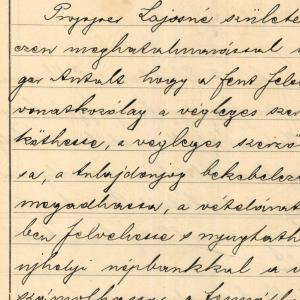 Lajosné születe
czen meghatalmazással
gar Antalt hogy a fent fel
vonatkozólag a végleges szer
köthesse, a végleges szerző
sa, a tulajdonjog bekebelez
megadhassa, a vételárat
ben felvehesse s nyugtath
ujhelyi népbankkal a
számolhasson a